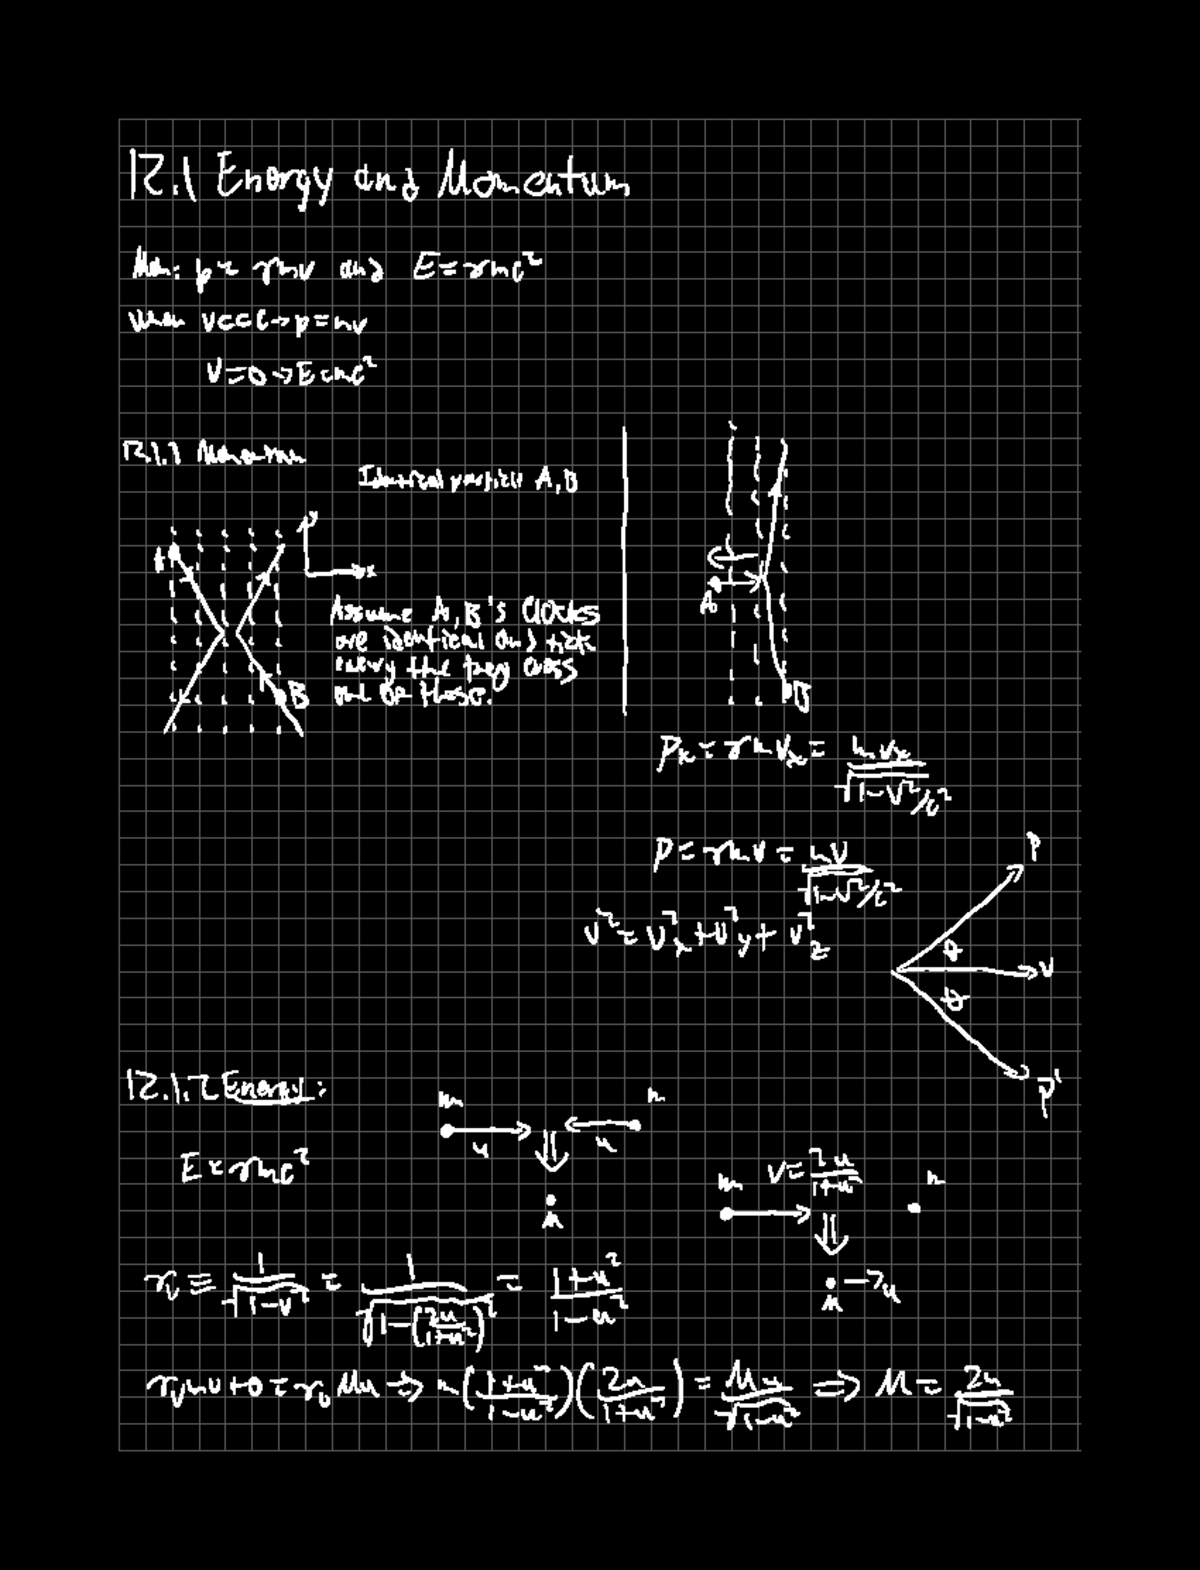 12.1 Energy and Momentum
p = γmv and E = γmc²
when v<<c → p = mv
v=0 → E=mc²
12.1.1 Momentum
Identical particles A, B
A
y
x
B
Assume A, B's clocks
are identical and tick
every time they cross
one of these.
A
B
Pₓ = γmvₓ = mvₓ/√(1-v²/c²)
P = γmv = mv/√(1-v²/c²)
v² = v²ₓ + v²y + v²z
P
θ
v
θ
P'
12.1.2 Energy:
m
m
u
u
E = γmc²
M
m
v = 2u/(1+u²)
m
M
→ u
γᵥ ≡ 1/√(1-v²) = 1/√(1-(2u/(1+u²))²) = (1+u²)/(1-u²)
γᵥmv + 0 = γᵤMu ⇒ m((1+u²)/(1-u²))(2u/(1+u²)) = Mu/√(1-u²) ⇒ M = 2m/√(1-u²)